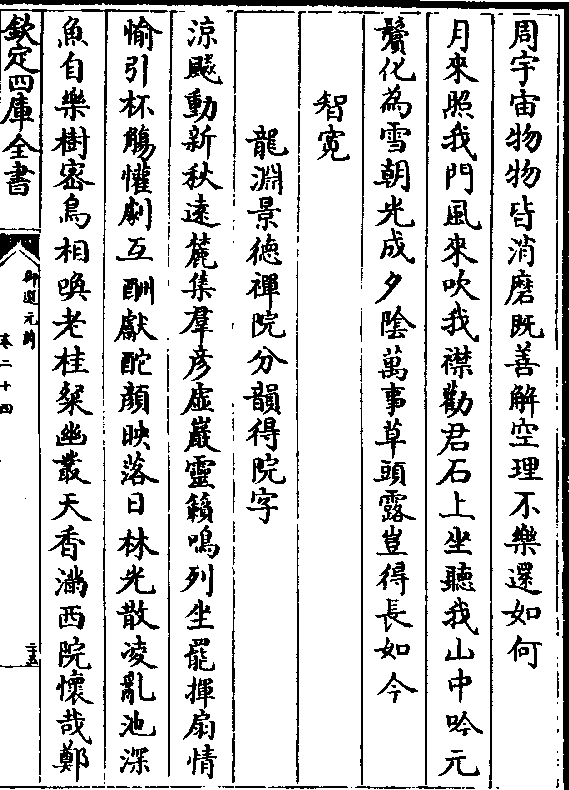 周宇宙物物皆消磨既善解空理不樂還如何
月來照我門風來吹我襟勸君石上坐聽我山中吟元
鬢化為雪朝光成夕陰萬事草頭露豈得長如今
智寛
龍淵景德禪院分韻得院字
涼飈動新秋遠麓集羣彦虚巖靈籟鳴列坐罷揮扇情
愉引杯觴懽劇互酬獻酡顔映落日林光散凌亂池深
魚自樂樹密鳥相喚老桂粲幽叢天香滿西院懷哉鄭
欽定四庫全書
御選元詩
卷二十四
二十五